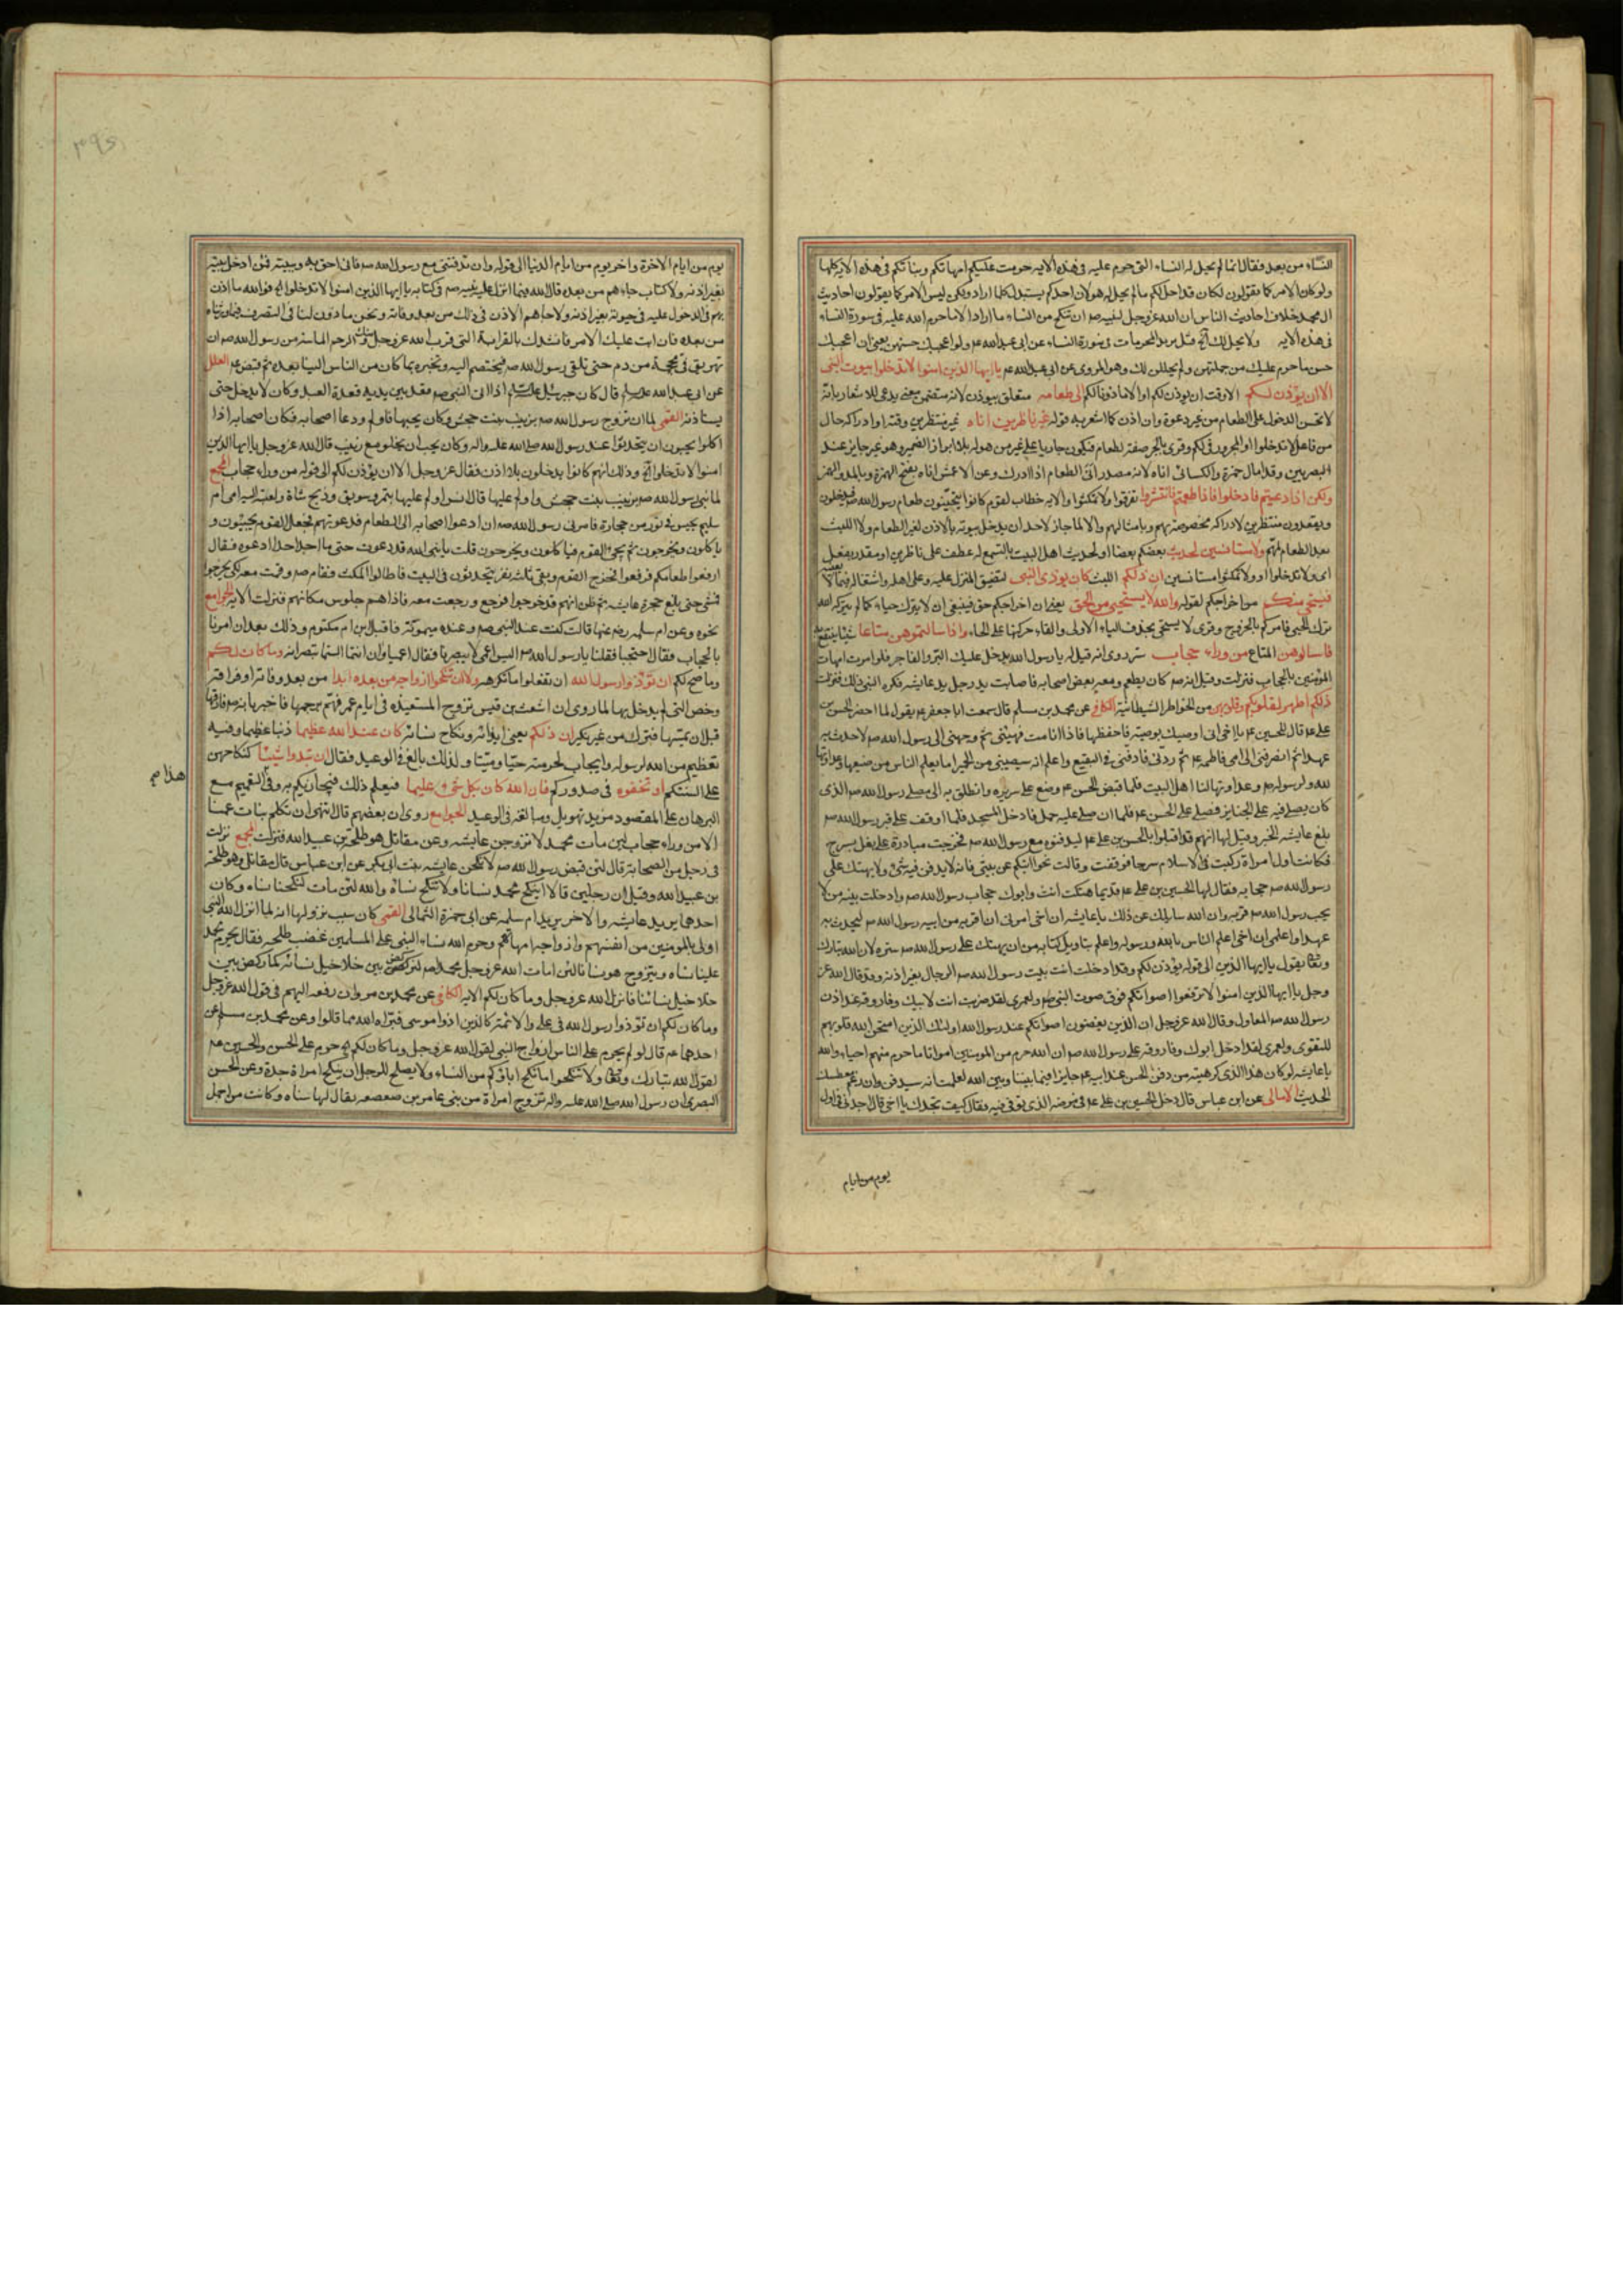 النساء من بعد فقال انما لم يحل له النساء التى حرم عليه فى هذه الايه حرمت عليكم امهاتكم وبناتكم فى هذه الايه كلها
ولو كان الامر كما يقولون لكان قد احل لكم ما لم يحل له هو لان احدكم يستبدل كلما اراد ولكن ليس الامر كما يقولون احاديث
ال محمد خلاف احاديث الناس ان الله عز وجل احل لنبيه صم ان ينكح من النساء ما اراد الا ما حرم الله عليه فى سورة النساء
فى هذه الايه ولا يحل لك الخ قيل يريد المحرمات فى سورة النساء عن ابى عبد الله عم ولو اعجبك حسنهن يعنى ان اعجبك
حسن ما حرم عليك من جملتهن ولم يحللن لك وهو المروى عن ابى عبد الله عم يا ايها الذين امنوا لا تدخلوا بيوت النبى
الا ان يؤذن لكم الا وقت ان يوذن لكم او الا ماذونا لكم الى طعام متعلق بيوذن لانه متضمن معنى يدعى للاشعار بانه
لا يحسن الدخول على الطعام من غير دعوة وان اذن كما اشعر به قوله غير ناظرين اناه غير منتظرين وقته او ادراكه حال
من فاعل لا تدخلوا او المجرور فى لكم وقرى بالجر صفة لطعام فيكون جاريا على غير من هو له بلا ابراز الضمير وهو غير جايز عند
البصريين وقد امال حمزة والكسائى اناه لانه مصدر انى الطعام اذا ادرك وعن الاعمش اناه بفتح الهمزة وبالمد والهمز
ولكن اذا دعيتم فادخلوا فاذا طعمتم فانتشروا تفرقوا ولا تمكثوا والايه خطاب لقوم كانوا يتحينون طعام رسول الله صم فيدخلون
ويقعدون منتظرين لادراكه مخصوصة بهم وبامثالهم والا لما جاز لاحد ان يدخل بيوته بالاذن لغير الطعام ولا اللبث
بعد الطعام لمهم ولا مستانسين لحديث بعضكم بعضا او لحديث اهل البيت بالتسمع له عطف على ناظرين او مقدر بفعل
اى ولا تدخلوا او ولا تمكثوا مستانسين ان ذلكم اللبث كان يوذى النبى لتضييق المنزل عليه وعلى اهله واشتغاله فيما لا يعنيه
فيستحيى منكم من اخراجكم لقوله والله لا يستحيى من الحق يعنى ان اخراجكم حق فينبغى ان لا يترك حياء كما لم يتركه الله
ترك الحيى فامركم بالخروج وقرى لا يستحى بحذف الياء الاولى والقاء حركتها على الحاء واذا سالتموهن متاعا شيئا ينتفع به
فاسالوهن المتاع من وراء حجاب ستر روى انه قيل له يا رسول الله يدخل عليك البر والفاجر فلو امرت امهات
المؤمنين بالحجاب فنزلت وقيل انه صم كان يطعم ومعه بعض اصحابه فاصابت يد رجل يد عايشه فكره النبى ذلك فنزلت
ذلكم اطهر لقلوبكم وقلوبهن من الخواطر الشيطانية الكافى عن محمد بن مسلم قال سمعت ابا جعفر عم يقول لما احضر الحسن بن
على عم قال للحسين عم يا اخى انى اوصيك بوصية فاحفظها فاذا انا مت فهيئنى ثم وجهنى الى رسول الله صم لاحدث به
عهدا ثم اصرفنى الى امى فاطمه عم ثم ردنى فادفنى فى البقيع واعلم انه سيصيبنى من الحميرا ما يعلم الناس من صنيعها وعداوتها
لله ولرسوله صم وعداوتها لنا اهل البيت فلما قبض الحسن عم وضع على سريره وانطلق به الى مصلى رسول الله صم الذى
كان يصلى فيه على الجنايز فصلى على الحسن عم فلما ان صلى عليه حمل فادخل المسجد فلما اوقف على قبر رسول الله صم
بلغ عايشه الخبر وقيل لها انهم قد اقبلوا بالحسن بن على عم ليدفنوه مع رسول الله صم فخرجت مبادرة على بغل بسرج
فكانت اول امراة ركبت فى الاسلام سرجا فوقفت وقالت نحوا ابنكم عن بيتى فانه لا يدفن فيه شئ ولا يهتك على
رسول الله صم حجابه فقال لها الحسين بن على عم قديما هتكت انت وابوك حجاب رسول الله صم وادخلت بيته من لا
يحب رسول الله صم قربه وان الله سايلك عن ذلك يا عايشه ان اخى امرنى ان اقربه من ابيه رسول الله صم ليحدث به
عهدا واعلمى ان اخى اعلم الناس بالله ورسوله واعلم بتاويل كتابه من ان يهتك على رسول الله صم ستره لان الله تبارك
وتعالى يقول يا ايها الذين الى قوله يؤذن لكم وقد ادخلت انت بيت رسول الله صم الرجال بغير اذنه وقد قال الله عز
وجل يا ايها الذين امنوا لا ترفعوا اصواتكم فوق صوت النبى صم ولعمرى لقد ضربت انت لابيك وفاروقه عند اذن
رسول الله صم المعاول وقال الله عز وجل ان الذين يغضون اصواتهم عند رسول الله اولئك الذين امتحن الله قلوبهم
للتقوى ولعمرى لقد ادخل ابوك وفاروقه على رسول الله صم ان الله حرم من المومنين امواتا ما حرم منهم احياء والله
يا عايشه لو كان هذا الذى كرهتيه من دفن الحسن عند ابيه عم جايزا فيما بيننا وبين الله لعلمت انه سيدفن وان رغم معطسك
الحديث الامالى عن ابن عباس قال دخل الحسين بن على على اخيه فى مرضه الذى توفى فيه فقال كيف تجدك يا اخى قال اجدنى فى اول
يوم من ايام
يوم من ايام الاخرة واخر يوم من ايام الدنيا الى قوله وان تدفننى مع رسول الله صم فانى احق به وببيته ممن ادخل بيته
بغير اذنه ولا كتاب جاءهم من بعده قال الله فيما انزل على نبيه صم فى كتابه يا ايها الذين امنوا لا تدخلوا الخ فوالله ما اذن
لهم فى الدخول عليه فى حيوته بغير اذنه ولا جاءهم الاذن فى ذلك من بعد وفاته ونحن ماذون لنا فى التصرف فيما ورثناه
من بعده فان ابت عليك الامر فانشدك بالقرابة التى قرب الله عز وجل منك والرحم الماسة من رسول الله صم ان
تهريق فى محجمة من دم حتى نلقى رسول الله صم فنختصم اليه ونخبره بما كان من الناس الينا بعده ثم قبض عم العلل
عن ابى عبد الله عليه السلم قال كان جبرئيل عليه السلم اذا اتى النبى صم قعد بين يديه قعدة العبد وكان لا يدخل حتى
يستاذنه القمى لما ان تزوج رسول الله صم بزينب بنت جحش وكان يحبها فاولم ودعا اصحابه فكان اصحابه اذا
اكلوا يحبون ان يتحدثوا عند رسول الله صلى الله عليه واله وكان يحب ان يخلو مع زينب فانزل الله عز وجل يا ايها الذين
امنوا لا تدخلوا الخ وذلك انهم كانوا يدخلون بلا اذن فقال عز وجل الا ان يؤذن لكم الى قوله من وراء حجاب المجمع
لما بنى رسول الله صم بزينب بنت جحش واولم عليها قال انس اولم عليها بتمر وسويق وذبح شاة وبعثت اليه امى ام
سليم بحيس فى تور من حجارة فامرنى رسول الله صم ان ادعو اصحابه الى الطعام فدعوتهم فجعل القوم يجيئون و
ياكلون ويخرجون ثم يجئ القوم فياكلون ويخرجون قلت يا نبى الله قد دعوت حتى ما اجد احدا ادعوه فقال
ارفعوا طعامكم فرفعوا فخرج القوم وبقى ثلث نفر يتحدثون فى البيت فاطالوا المكث فقام صم وقمت معه لكى يخرجوا
فمشى حتى بلغ حجرة عايشه ثم ظن انهم قد خرجوا فرجع ورجعت معه فاذا هم جلوس مكانهم فنزلت الايه الجوامع
نحوه وعن ام سلمه رض عنها قالت كنت عند النبى صم وعنده ميمونة فاقبل ابن ام مكتوم وذلك بعد ان امرنا
بالحجاب فقال احتجبا فقلنا يا رسول الله صم اليس اعمى لا يبصرنا فقال اعمياوان انتما الستما تبصرانه وما كان لكم
وما صح لكم ان تؤذوا رسول الله ان تفعلوا ما تكرهه ولا ان تنكحوا ازواجه من بعده ابدا من بعد وفاته او فراقه
وخص التى لم يدخل بها لما روى ان اشعث بن قيس تزوج المستعيذه فى ايام عمر فهم برجمها فاخبر بانه صم فارقها
قبل ان يمسها فترك من غير نكير ان ذلكم يعنى ايذائه ونكاح نسائه كان عند الله عظيما ذنبا عظيما وفيه
تعظيم من الله لرسوله وايجاب لحرمته حيا وميتا ولذلك بالغ فى الوعيد فقال ان تبدوا شيئا كنكاحهن
على السنتكم او تخفوه فى صدوركم فان الله كان بكل شئ عليما فيعلم ذلك فيجازيكم به وفى التعميم مع
هذا م
البرهان على المقصود مزيد تهويل ومبالغة فى الوعيد الجوامع روى ان بعضهم قال اننهى ان نكلم بنات عمنا
الا من وراء حجاب لئن مات محمد لاتزوجن عايشه وعن مقاتل هو طلحة بن عبيد الله فنزلت المجمع نزلت
فى رجل من الصحابة قال لئن قبض رسول الله صم لانكحن عايشه بنت ابى بكر عن ابن عباس قال مقاتل وهو طلحة
بن عبيد الله وقيل ان رجلين قالا اينكح محمد نساءنا ولا ننكح نساءه والله لئن مات لنكحنا نساءه وكان
احدهما يريد عايشه والاخر يريد ام سلمه عن ابى حمزة الثمالى القمى كان سبب نزولها انه لما انزل الله النبى
اولى بالمومنين من انفسهم وازواجه امهاتهم وحرم الله نساء النبى على المسلمين غضب طلحه فقال يحرم محمد
علينا نساءه ويتزوج هو نساءنا لئن امات الله عز وجل محمدا صم لنركض بين خلاخيل نسائه كما ركض بين
خلاخيل نسائنا فانزل الله عز وجل وما كان لكم الايه الكافى عن محمد بن مروان رفعه اليهم فى قول الله عز وجل
وما كان لكم ان تؤذوا رسول الله فى على والائمة كالذين اذوا موسى فبراه الله مما قالوا وعن محمد بن مسلم عن
احدهما عم قال لو لم يحرم على الناس ازواج النبى لقول الله عز وجل وما كان لكم الخ حرم على الحسن والحسين عم
لقول الله تبارك وتعالى ولا تنكحوا ما نكح اباؤكم من النساء ولا يصلح للرجل ان ينكح امراة جده وعن الحسن
البصرى ان رسول الله صلى الله عليه واله تزوج امراة من بنى عامر بن صعصعه يقال لها سناه وكانت من اجمل